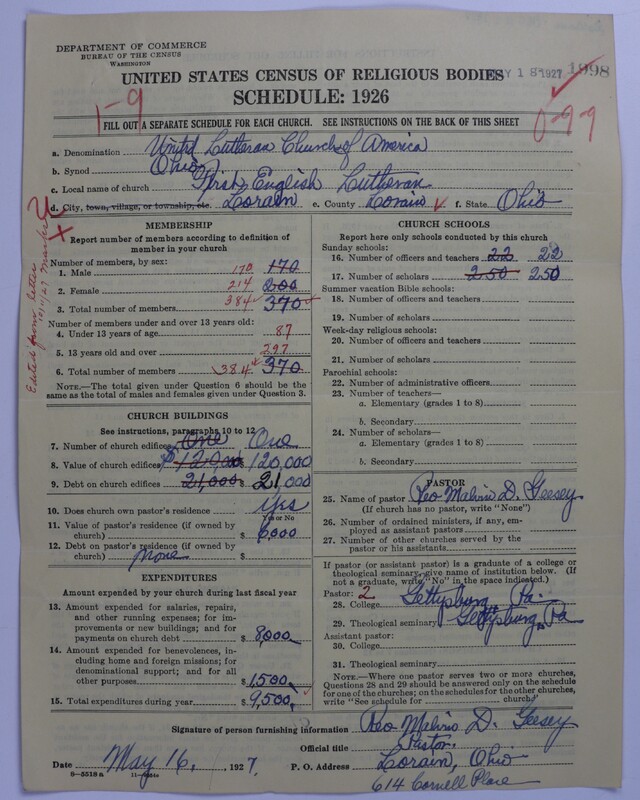 DEPARTMENT OF COMMERCE
BUREAU OF THE CENSUS
WASHINGTON
UNITED STATES CENSUS OF RELIGIOUS BODIES
SCHEDULE: 1926
18 1927 1998
1-9
0-9-9
FILL OUT A SEPARATE SCHEDULE FOR EACH CHURCH. SEE INSTRUCTIONS ON THE BACK OF THIS SHEET
a. Denomination United Lutheran Church of America
b. Synod Ohio
c. Local name of church First English Lutheran
d. City, town, village, or township, etc. Lorain e. County Lorain f. State. Ohio
Edited from letter
MEMBERSHIP
Report number of members according to definition of
member in your church
Number of members, by sex:
1. Male 170 170
2. Female 214 200
3. Total number of members 384 370
Number of members under and over 13 years old:
4. Under 13 years of age 87
5. 13 years old and over 297
6. Total number of members 384 370
NOTE.—The total given under Question 6 should be
the same as the total of males and females given under Question 3.
CHURCH BUILDINGS
See instructions, paragraphs 10 to 12
7. Number of church edifices One One
8. Value of church edifices $120,000 120,000
9. Debt on church edifices 21,000 21,000
10. Does church own pastor's residence Yes
Yes or No
11. Value of pastor's residence (if owned by
church) $ 6,000
12. Debt on pastor's residence (if owned by
church) none $
EXPENDITURES
Amount expended by your church during last fiscal year
13. Amount expended for salaries, repairs,
and other running expenses; for im-
provements or new buildings; and for
payments on church debt $ 8,000
14. Amount expended for benevolences, in-
cluding home and foreign missions; for
denominational support; and for all
other purposes $ 1,500
15. Total expenditures during year $ 9,500
CHURCH SCHOOLS
Report here only schools conducted by this church
Sunday schools:
16. Number of officers and teachers 22 22
17. Number of scholars 250 250
Summer vacation Bible schools:
18. Number of officers and teachers
19. Number of scholars
Week-day religious schools:
20. Number of officers and teachers
21. Number of scholars
Parochial schools:
22. Number of administrative officers
23. Number of teachers—
a. Elementary (grades 1 to 8)
b. Secondary
24. Number of scholars—
a. Elementary (grades 1 to 8)
b. Secondary
PASTOR
25. Name of pastor Rev Malvin D. Geesey
(If church has no pastor, write "None")
26. Number of ordained ministers, if any, em-
ployed as assistant pastors
27. Number of other churches served by the
pastor or his assistants
If pastor (or assistant pastor) is a graduate of a college or
theological seminary, give name of institution below. (If
not a graduate, write "No" in the space indicated.)
Pastor: 2
28. College Gettysburg, Pa.
29. Theological seminary Gettysburg, Pa
Assistant pastor:
30. College
31. Theological seminary
NOTE.—Where one pastor serves two or more churches,
Questions 28 and 29 should be answered only on the schedule
for one of the churches; on the schedules for the other churches,
write "See schedule for church."
Signature of person furnishing information Rev Malvin D. Geesey
Official title Pastor
Date May 16, 1927. P. O. Address Lorain, Ohio
8—5518 a
614 Cornell Place